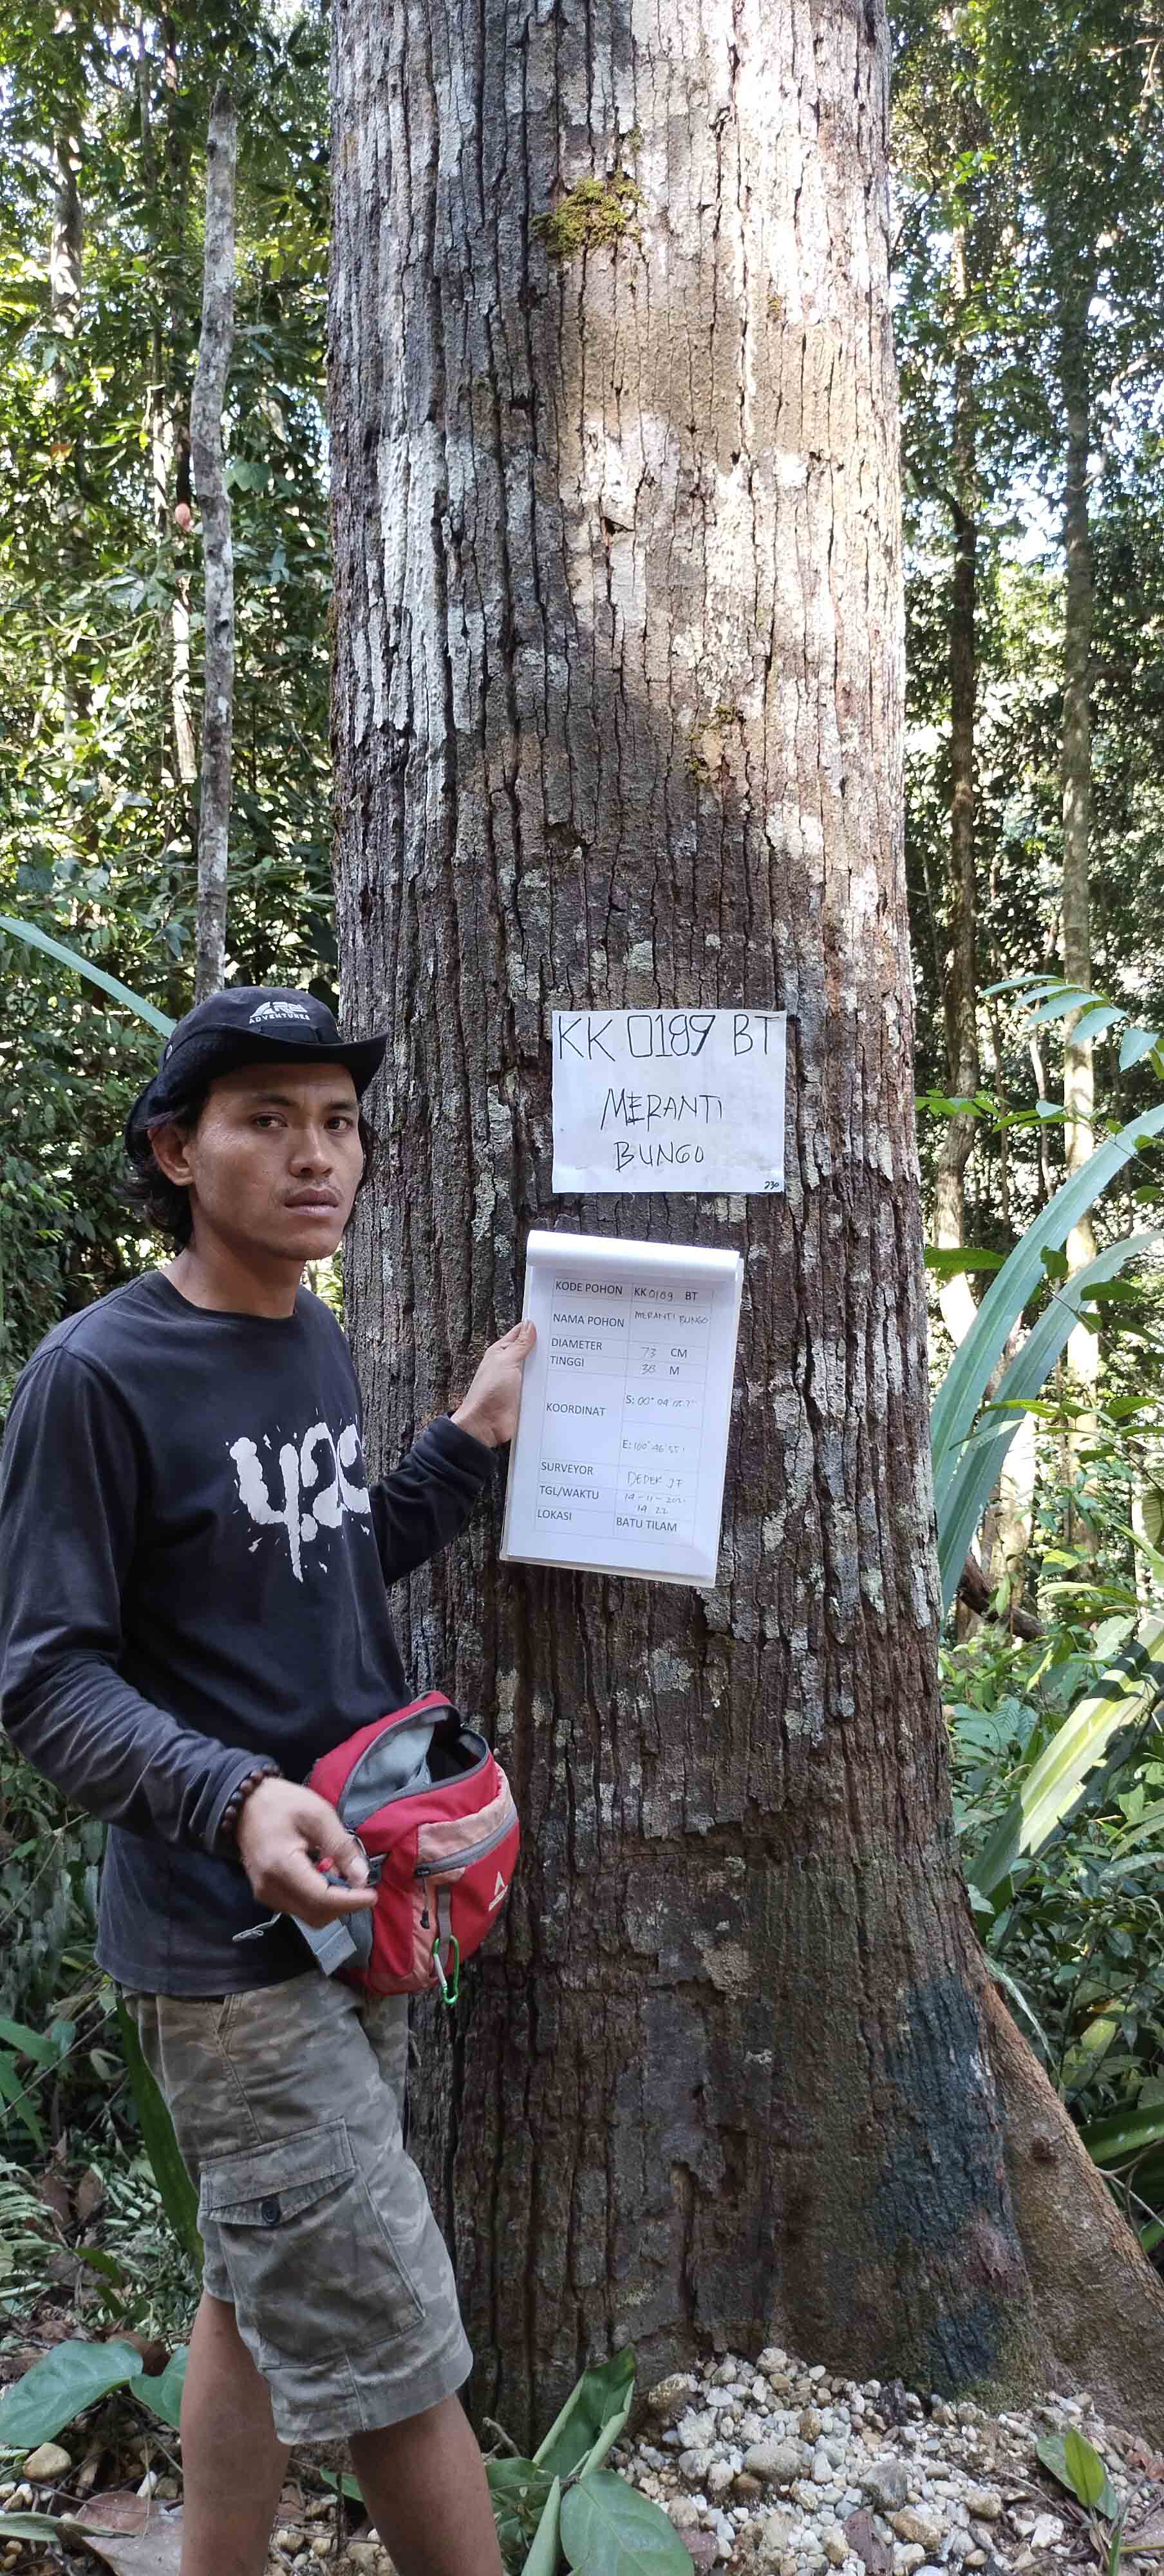 ADVENTURES
KK 0189 BT
MERANTI
BUNGO
230
KODE POHON KK 0189 BT
NAMA POHON MERANTI BUNGO
DIAMETER 73 CM
TINGGI 38 M
KOORDINAT S: 00° 04'
E: 100° 46'
SURVEYOR DEDEK JF
TGL/WAKTU 14-11-202
14 22
LOKASI BATU TILAM
420